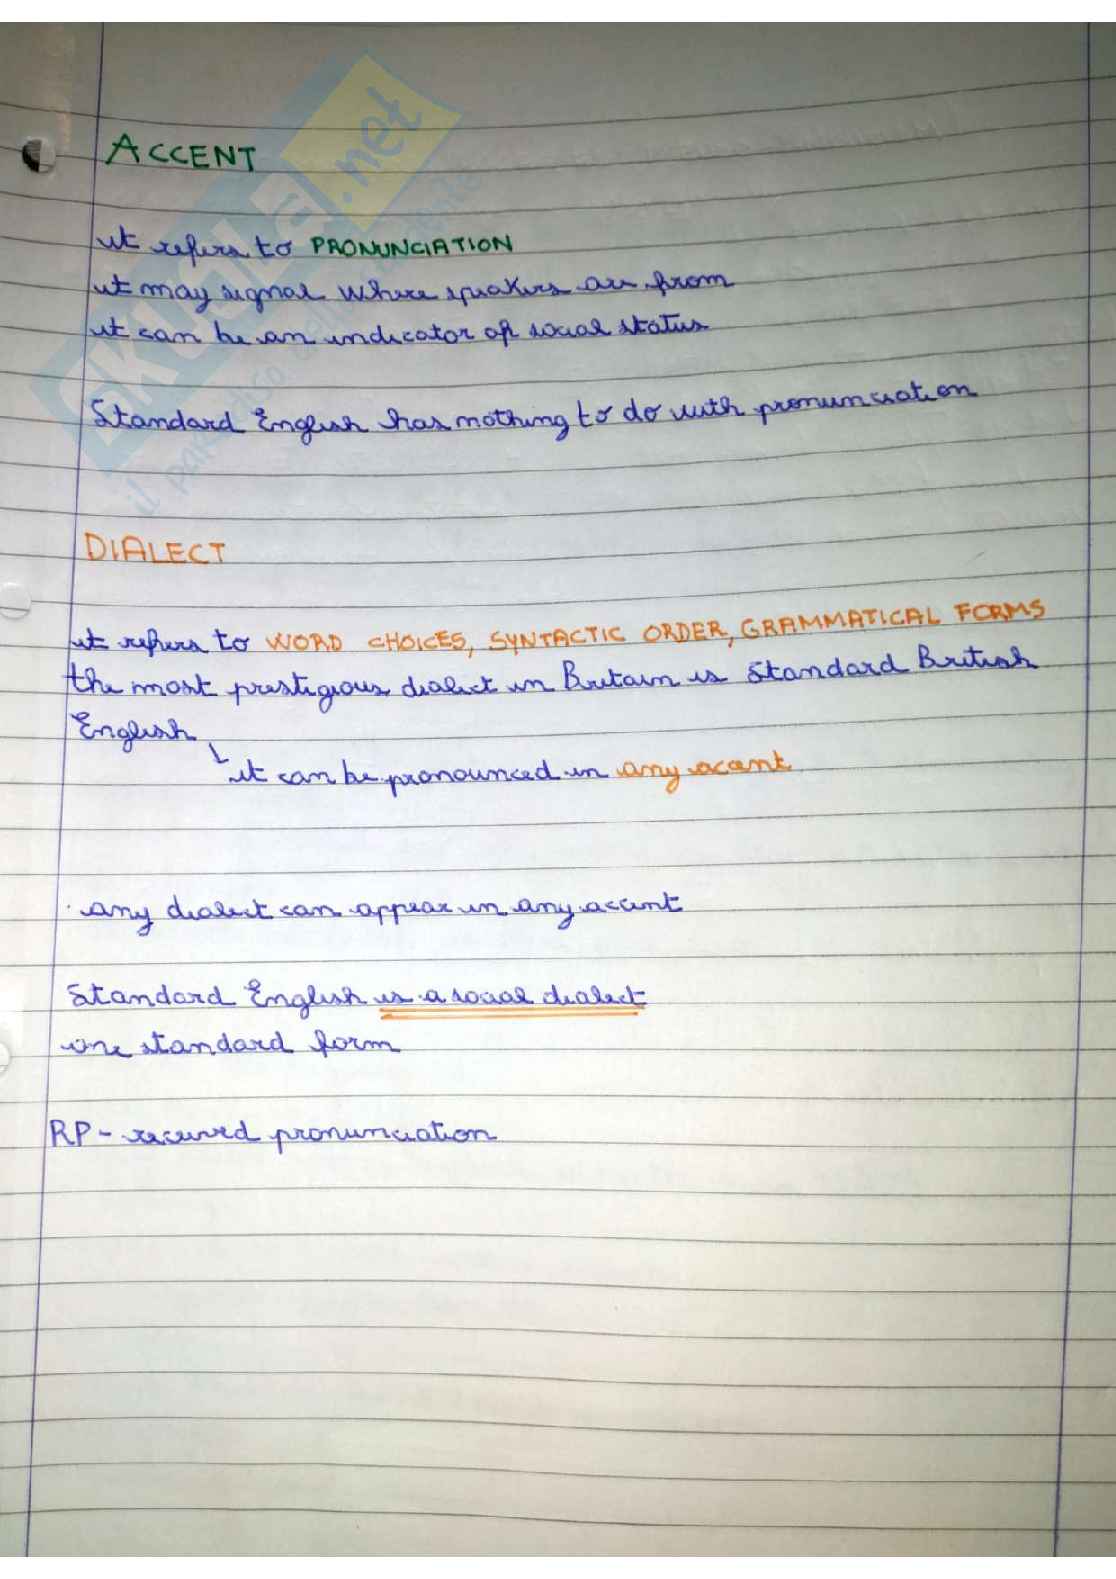 ACCENT
it refers to PRONUNCIATION
it may signal where speakers are from
it can be an indicator of social status
Standard English has nothing to do with pronunciation
DIALECT
it refers to WORD CHOICES, SYNTACTIC ORDER, GRAMMATICAL FORMS
the most prestigious dialect in Britain is Standard British
English
it can be pronounced in any accent
· any dialect can appear in any accent
Standard English is a social dialect
one standard form
RP - received pronunciation
SKUOLA.net